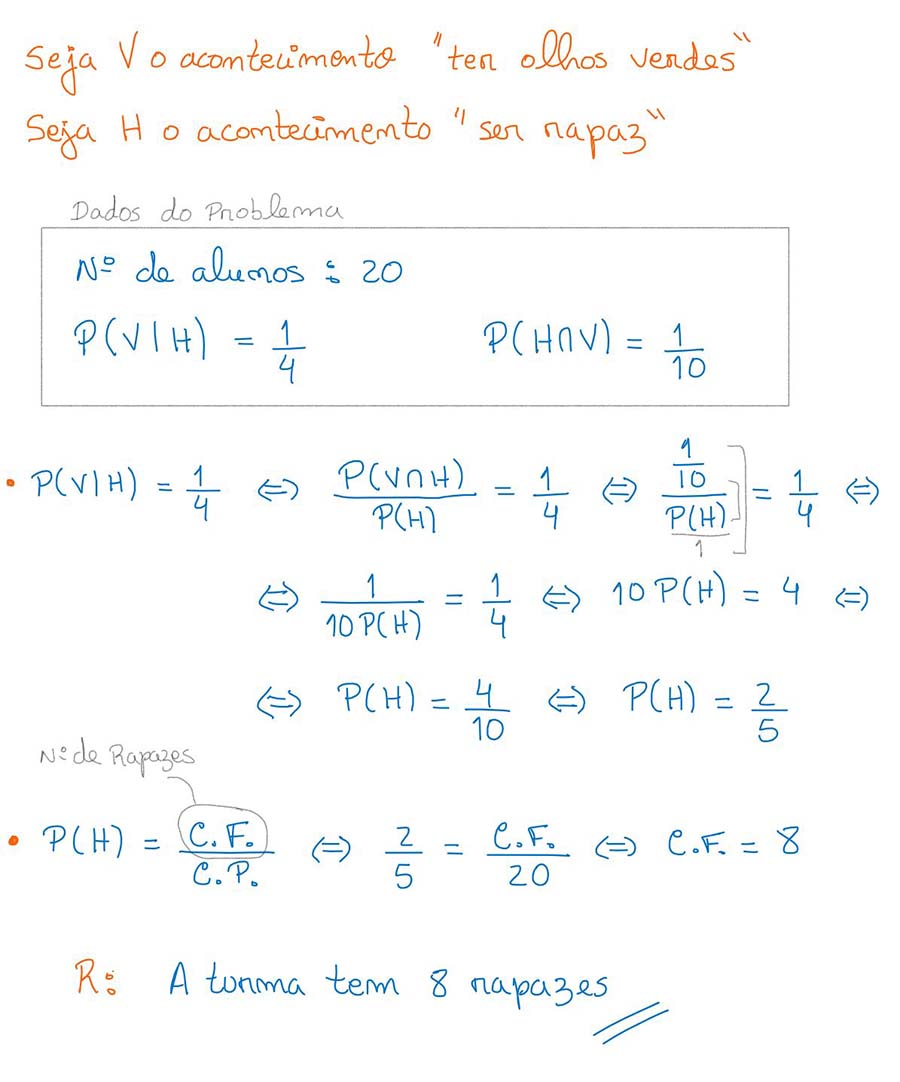 Seja V o acontecimento "ter olhos verdes"
Seja H o acontecimento "ser rapaz"
Dados do Problema
Nº de alunos : 20
P(V|H) = 1/4 P(H∩V) = 1/10
• P(V|H) = 1/4 ⇔ P(V∩H)/P(H) = 1/4 ⇔ (1/10)/(P(H)/1) = 1/4 ⇔
⇔ 1/(10P(H)) = 1/4 ⇔ 10P(H) = 4 ⇔
⇔ P(H) = 4/10 ⇔ P(H) = 2/5
Nº de Rapazes
• P(H) = C.F./C.P. ⇔ 2/5 = C.F./20 ⇔ C.F. = 8
R: A turma tem 8 rapazes